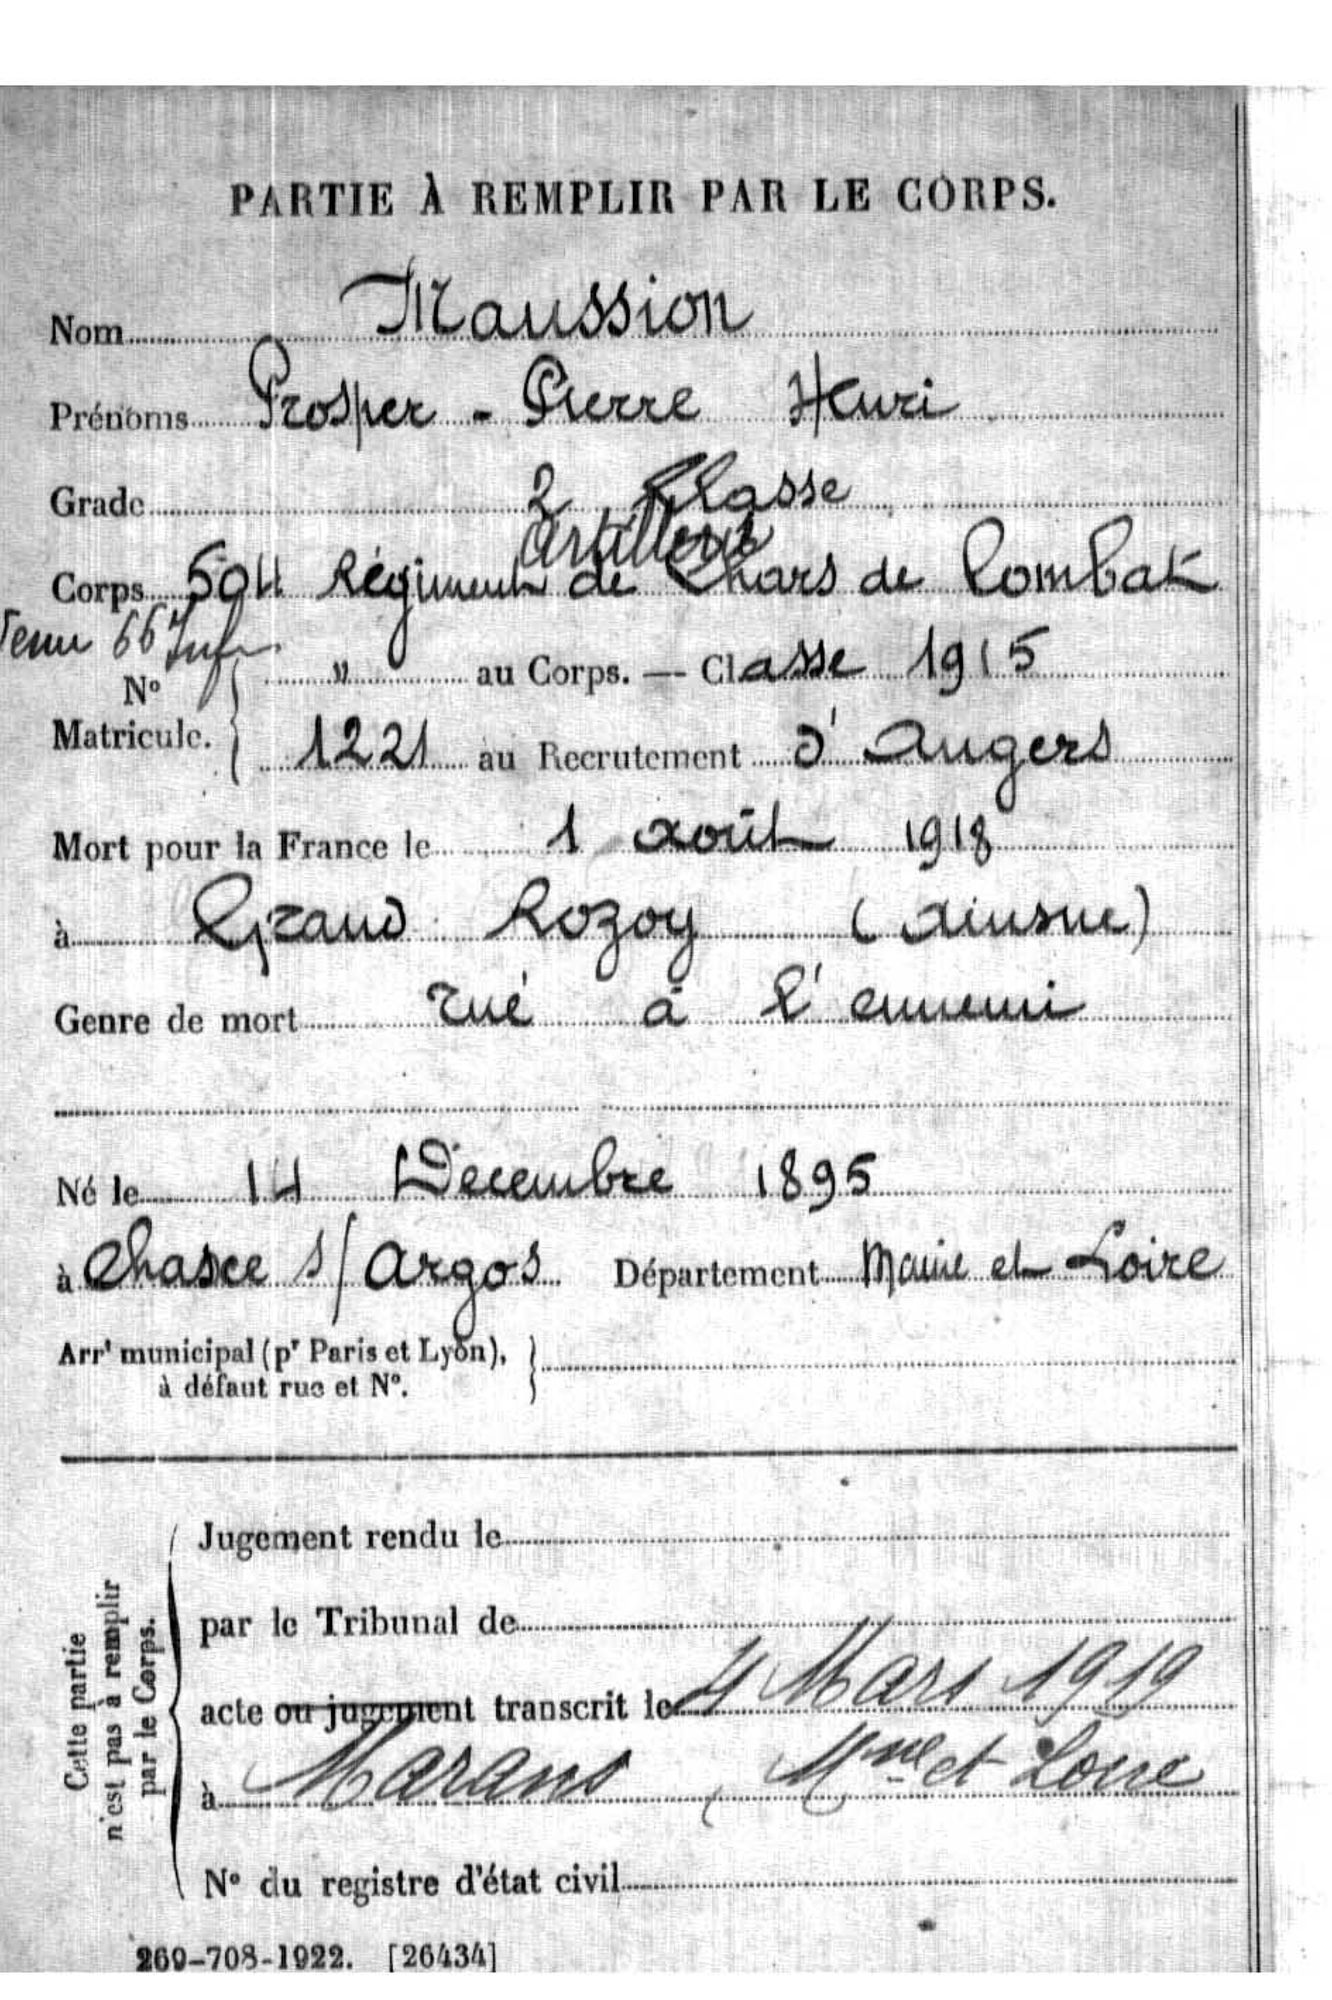 PARTIE À REMPLIR PAR LE CORPS.
Nom Maussion
Prénoms Prosper - Pierre Henri
Grade 2 Classe
artillerie
Corps 504 Régiment de Chars de Combat
Venu 66 Inf
N° " au Corps. — Classe 1915
Matricule. 1221 au Recrutement d'Angers
Mort pour la France le 1 août 1918
à Grand Rozoy (Ainsne)
Genre de mort Tué à l'ennemi
Né le 14 Decembre 1895
à Chasce s/ Argos Département Maine et Loire
Arrt municipal (pr Paris et Lyon),
à défaut rue et N°.
Jugement rendu le
par le Tribunal de
acte ou jugement transcrit le 4 Mars 1919
à Marans (Mne et Loire
N° du registre d'état civil
Cette partie
n'est pas à remplir
par le Corps.
269-708-1922. [26434]